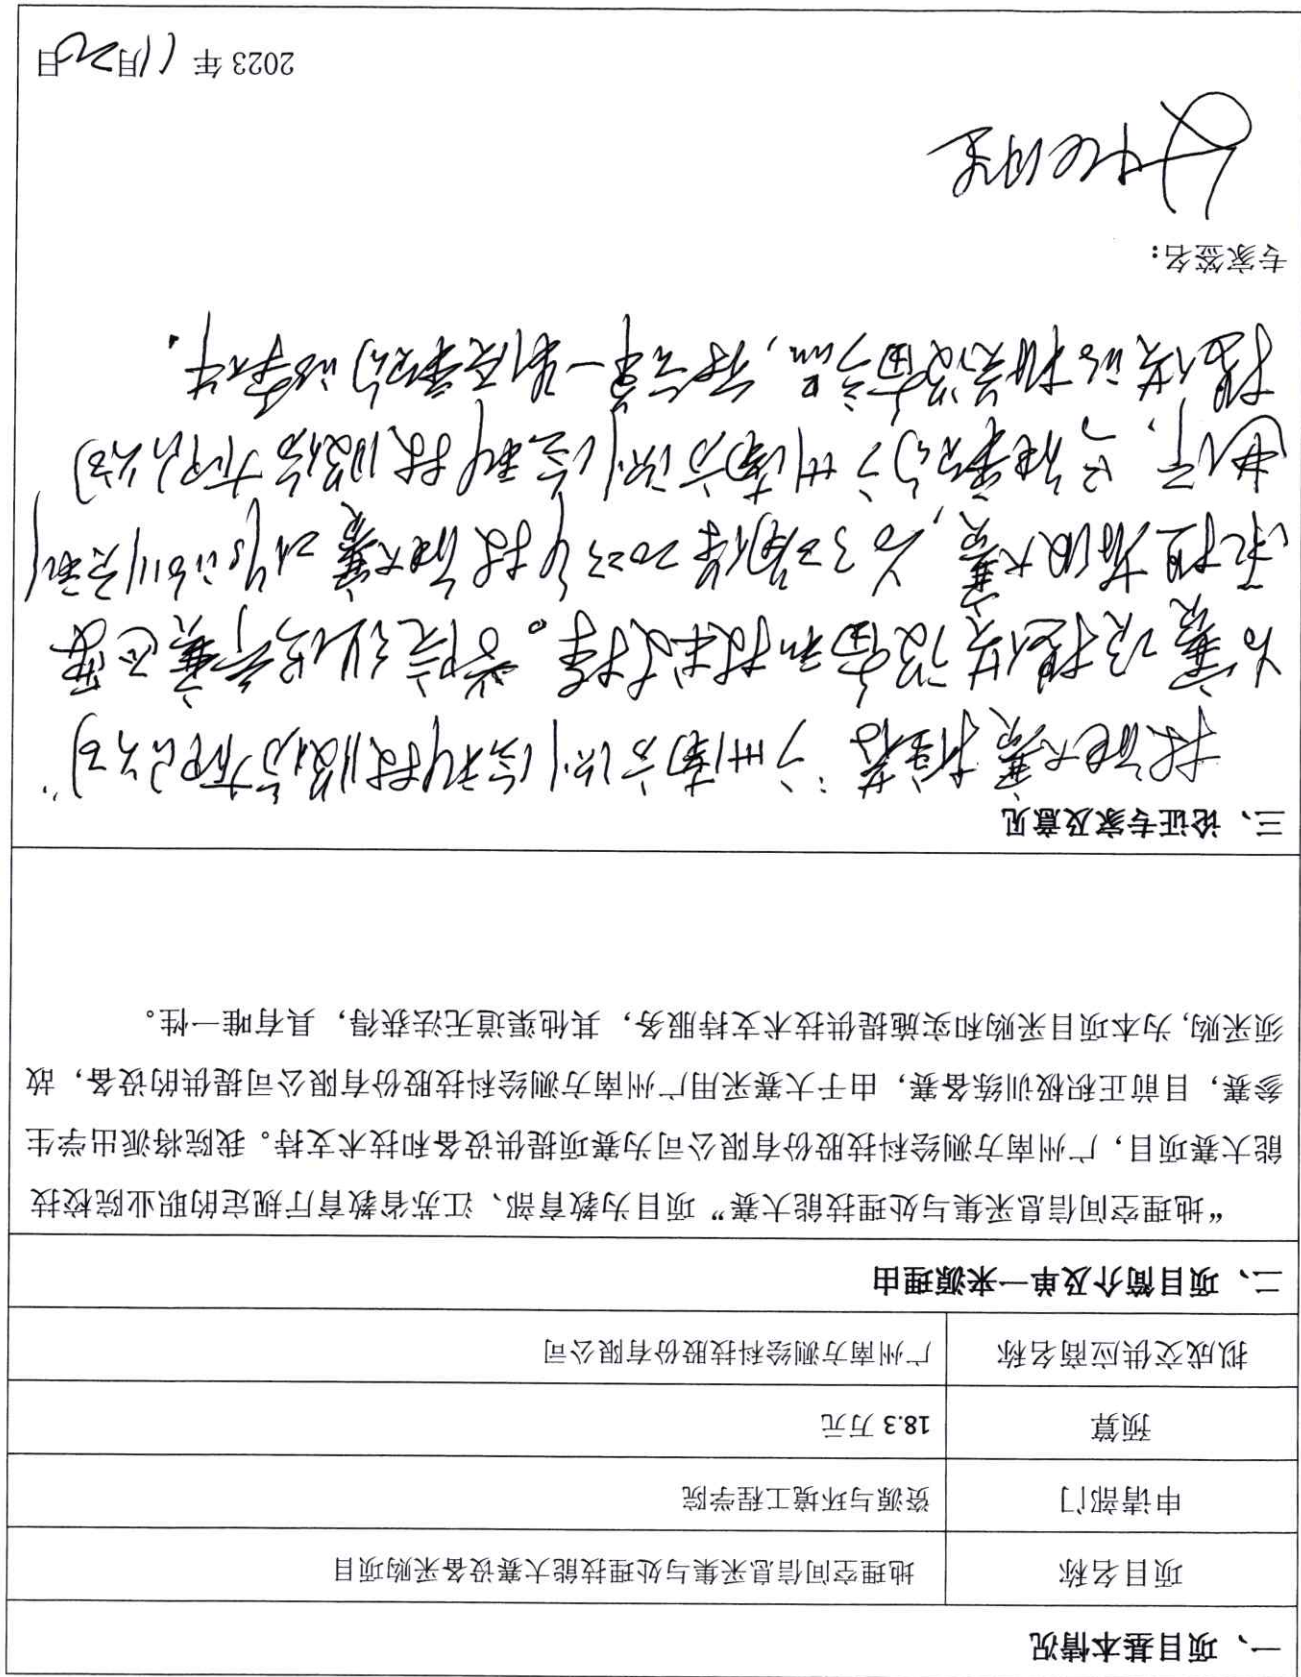 一、项目基本情况
项目名称 地理空间信息采集与处理技能大赛设备采购项目
申请部门 资源与环境工程学院
预算 18.3 万元
拟成交供应商名称 广州南方测绘科技股份有限公司
二、项目简介及单一来源理由
“地理空间信息采集与处理技能大赛”项目为教育部、江苏省教育厅规定的职业院校技
能大赛项目，广州南方测绘科技股份有限公司为赛项提供设备和技术支持。我院将派出学生
参赛，目前正积极训练备赛，由于大赛采用广州南方测绘科技股份有限公司提供的设备，故
须采购，为本项目采购和实施提供技术支持服务，其他渠道无法获得，具有唯一性。
三、论证专家及意见
技能大赛 广州南方测绘科技股份有限公司
为赛项提供设备和技术支持。学院 竞赛
承担省级大赛，为 2023年技能大赛
只能采购广州南方测绘科技股份有限公司
提供的相关设备产品，符合单一 采购的条件.
专家签名：
2023 年 11月20日